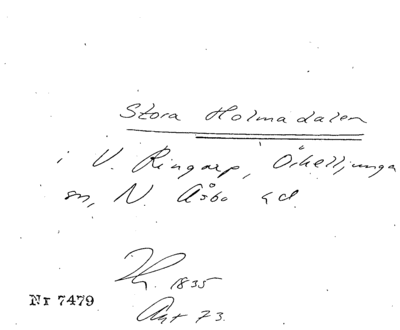 Stora Holmadalen
i V. Ringarp, Örkelljunga
sn, N. Åsbo hd.
1835
Nr 7479
Akt 73.